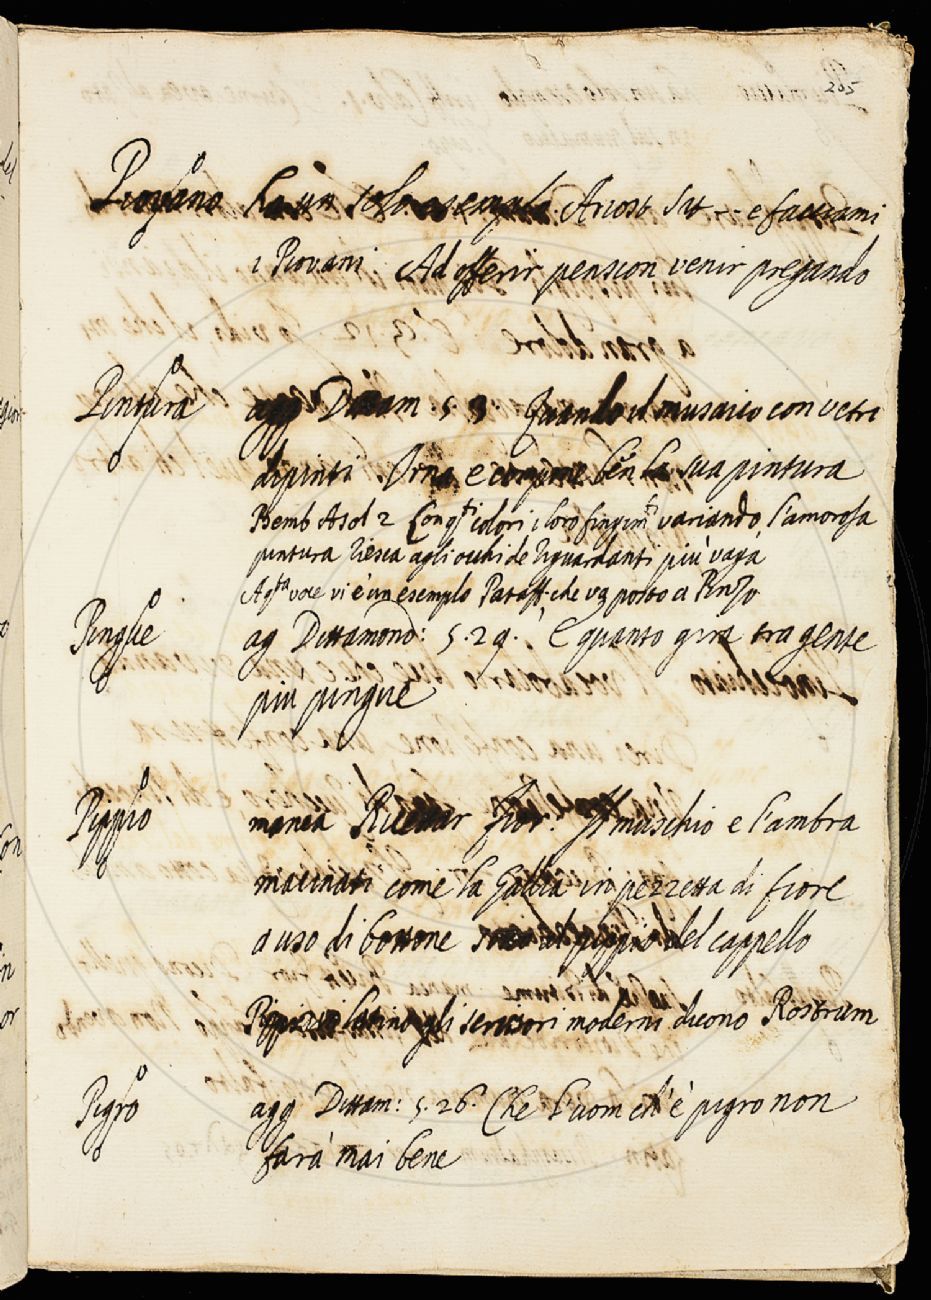 205
Piovano ha un solo esempio. Ariost. Sat -- e facciami
i Piovani Ad offerir pension venir pregando
Pintura agg. Dittam. 5 3 Quando il musaico con vetri
dipinti Orna e compone ben la sua pintura
Bemb Asol 2 Con q.ti colori i loro fingim.ti variando, l'amorosa
pintura riesca agli occhi de riguardanti più vaga
A q.ta voce vi è un esempio Pataff. che va posto a Pinzo
Pingue ag Dittamond: 5. 29. E quanto gira tra gente
più pingue
Pippio manca Ricettar fior: Il muschio e l'ambra
macinati come la Galbia in pezzetta di fiore
a uso di bottone del cappello
latino gli scrittori moderni dicono Rostrum
Pigro agg Dittam: 5. 26. Che l'uom ch'è pigro non
farà mai bene